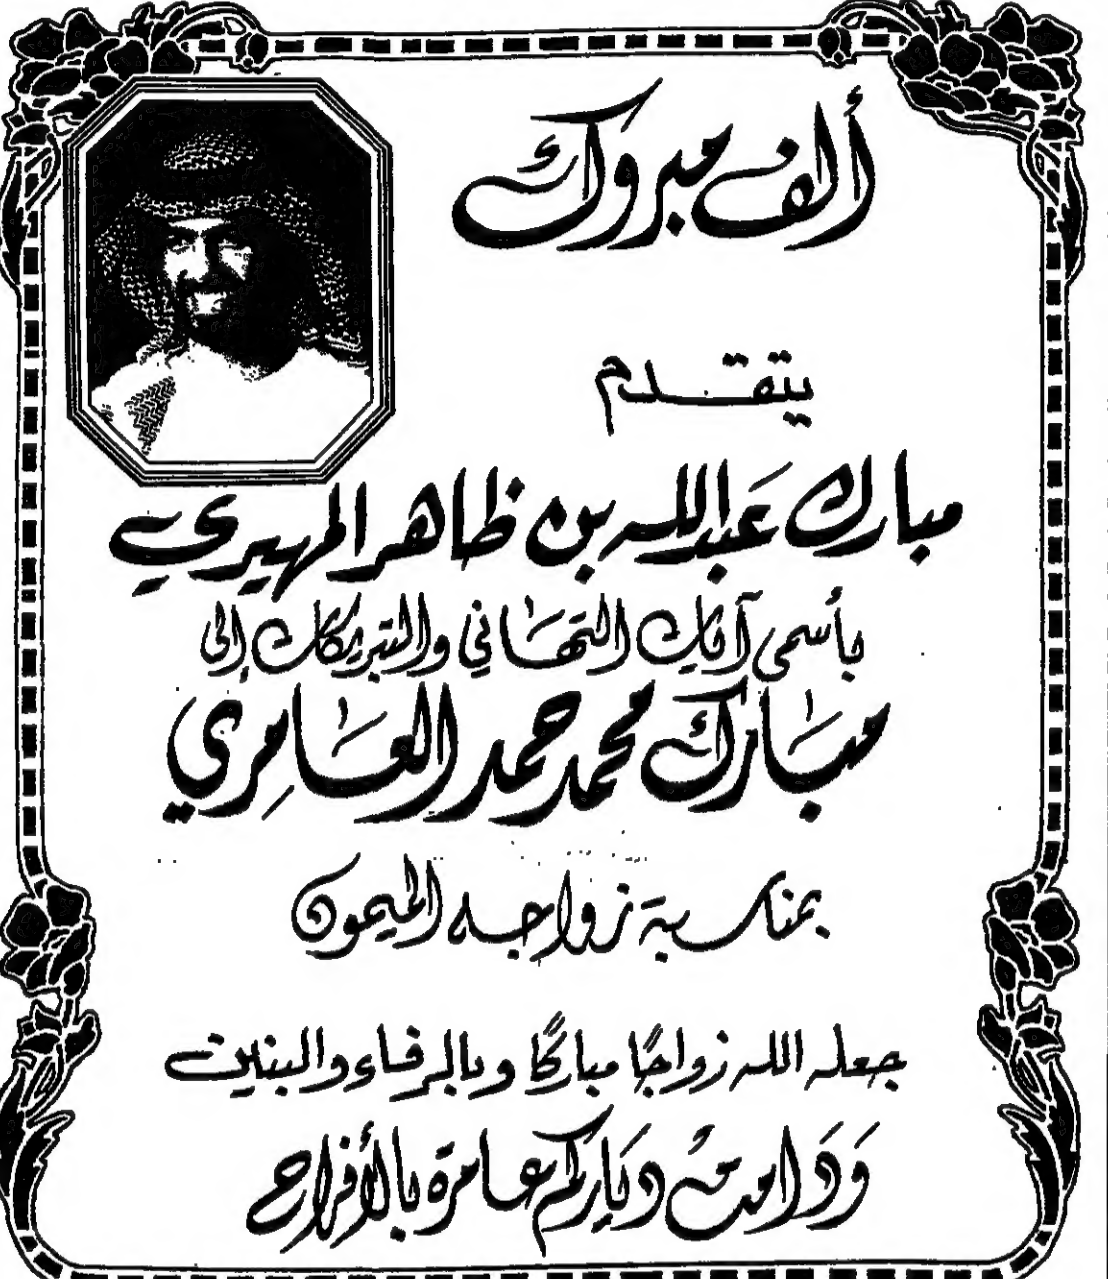 ألف مبروك
يتقدم
مبارك عبدالله بن ظاهر المهيري
بأسمى آيات التهاني والتبريكات إلى
مبارك محمد حمد العامري
بمناسبة زواجه الميمون
جعله الله زواجًا مباركًا وبالرفاء والبنين
وَدَامت دياركم عامرة بالأفراح